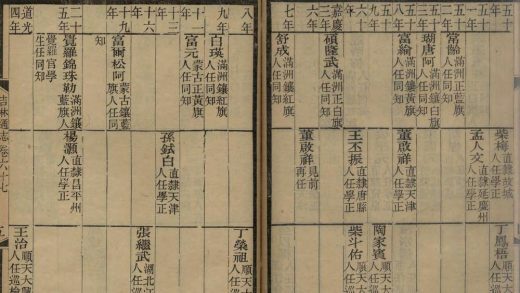 常齡 滿洲正藍旗人任同知
柴梅 直隸故城人任學正
丁鳳梧 順天大人任巡
瑚唐阿 滿洲鑲白旗人任同知
孟人文 直隸延慶州人任學正
富綸 滿洲鑲旗人任同知
董啟祥 直隸天津人任學正
陶家賓 順天大人任巡
六十年
王丕振 直隸唐縣人任學正
柴斗佑 順天大人任巡
嘉慶三年
碩隆武 滿洲正白旗人任同知
六年
董啟祥 見前再任
七年
舒成 滿洲鑲紅旗人任同知
八年
丁榮祖 順天大人任巡
九年
白瑛 滿洲鑲紅旗人任同知
十一年
富元 蒙古正黃旗人任同知
十三年
孫鉽白 直隸天津人任學正
十六年
張繼武 湖北江人任巡
十九年
富爾松阿 蒙古鑲藍旗人任同知
二十五年
覺羅錦珠勒 滿洲鑲藍旗人覺羅官學生任同知
楊灝 直隸昌平州人任學正
道光四年
王治 順天大人任巡檢
吉林通志卷六十七